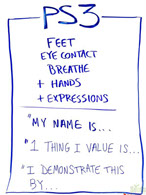 PS3
FEET
EYE CONTACT
BREATHE
+ HANDS
+ EXPRESSIONS
"MY NAME IS...
"1 THING I VALUE IS...
"I DEMONSTRATE THIS
BY...